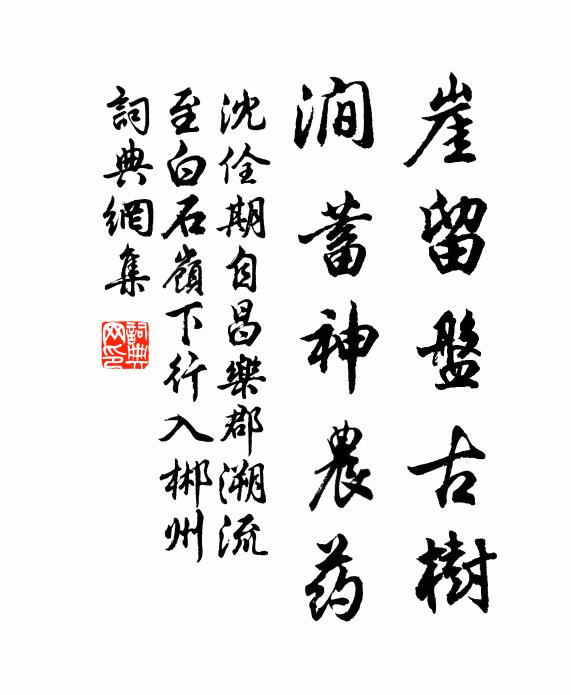 崖留盤古樹
澗蓄神農药
沈佺期自昌樂郡溯流
至白石嶺下行入郴州
詞典網集
詞典网印